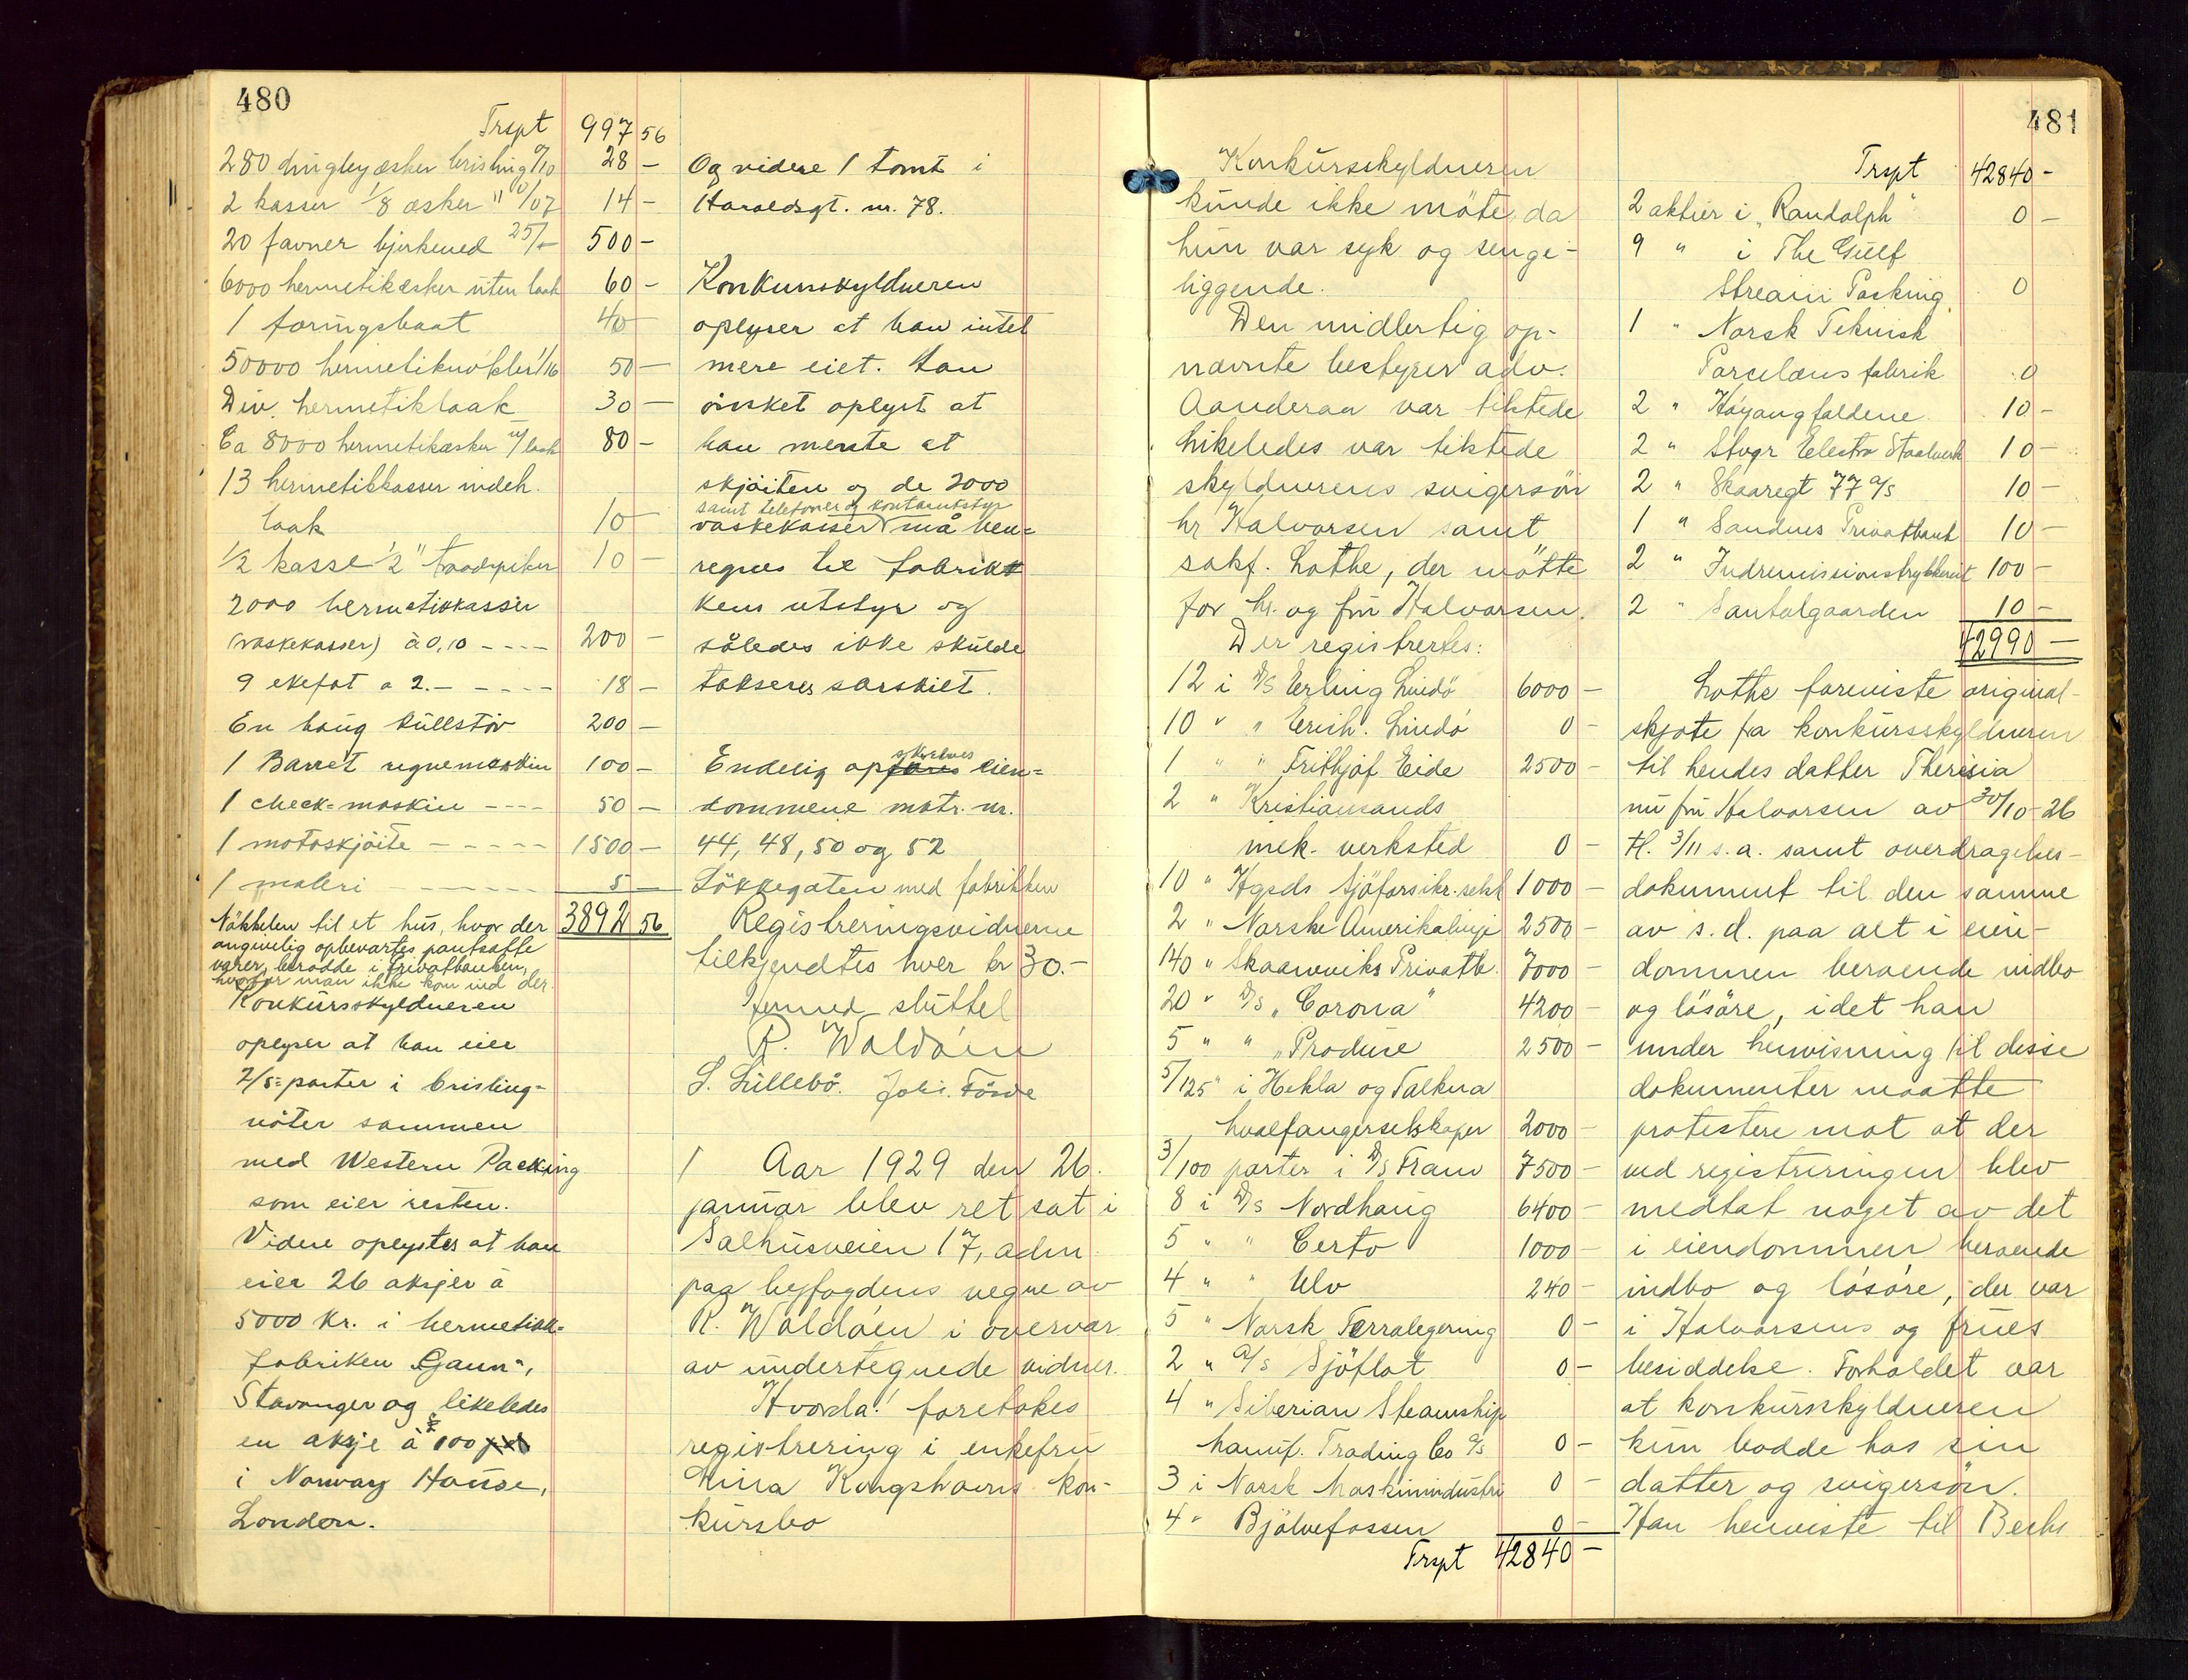 480
Trspt 997 56
280 dingley æsker brisling a/10 28 –
2 kasser 1/8 æsker " a/07 14 –
20 favner bjerkeved 25/- 500 –
6000 hermetikæsker uten laak 60 –
1 føringsbaat 40
50000 hermetiknøkler 1/16 50 –
Div. hermetiklaak 30 –
Ca 8000 hermetikæsker m/laak 80 –
13 hermetikkasser indeh.
laak 10 –
1/2 kasse 1/2" traadspiker 10 –
2000 hermetikkasser
(vaskekasser) à 0,10 ---- 200 –
9 ekefat a 2.- ---- 18 –
En haug kullstöv 200 –
1 Barret regnemaskin 100 –
1 check-maskin ---- 50 –
1 motoskjöite ----- 1500 –
1 maleri ------ 5 –
3892 56
Nökkelen til et hus, hvor der
angivelig opbevartes pantsatte
varer, berodde i Privatbanken,
hvorfor man ikke kom ind der.
Konkursskyldneren
oplyser at han eier
2/5-parter i brisling-
nöter sammen
med Western Packing
som eier resten.
Videre oplystes at han
eier 26 aksjer à
5000 kr. i hermetikk-
fabriken "Gann",
Stavanger og likeledes
en aksje à £ 100
i Norway House,
London.
Og videre 1 tomt i
Haraldsgt. nr. 78.
Konkursskyldneren
oplyser at han intet
mere eiet. Han
önsket oplyst at
han mente at
skjöiten og de 2000
samt telefoner og kontorutstyr
vaskekasser må hen-
regnes til fabrik
kens utstyr og
således ikke skulde
takseres særskilt.
Endelig opskrives eien-
dommene matr. nr.
44, 48, 50 og 52
Sökkegaten med fabrikken
Registreringsvidnerne
tilkjendtes hver kr 30.-
Hermed sluttet
R. Waldáen
S. Lillebö. Johs. Förde
1 Aar 1929 den 26.
januar blev ret sat i
Salhusveien 17, adm.
paa byfogdens vegne av
R. Waldáen i overvær
av undertegnede vidner.
Hvorda! foretokes
registrering i enkefru
Lina Kongshavns kon-
kursbo
481
Konkursskyldneren
kunde ikke möte, da
hun var syk og senge-
liggende.
Den midlertig op-
nævnte bestyrer adv.
Aanderaa var tilstede
Likeledes var tilstede
skyldnerens svigersön
hr Halvorsen samt
sakf. Lothe, der mötte
for hr. og fru Halvorsen.
Der registrertes:
12 i D/S Erling Lindö 6000 –
10 " " Erich. Lindö 0 –
1 " " Frithjof Eide 2500 –
2 " Kristiansands
mek. verksted 0 –
10 " Hgsds Sjöforsikr.selsk 1000 –
2 " Norske Amerikalinje 2500 –
140 " Skaanviks Privatb. 7000 –
20 " D/S "Corona" 4200 –
5 " " "Produce 2500 –
5/125 " i Hekla og Talkna
hvalfangerselskaper 2000 –
3/100 parter i D/S Fram 7500 –
8 i D/S Nordhaug 6400 –
5 " " Certo 1000 –
4 " " Ulv 240 –
5 " Norsk Ferralegering 0 –
2 " A/S Sjöflot 0 –
4 " Siberian Steamship
Manuf. Trading Co A/S 0 –
3 i Norsk Maskinindustri 0 –
4 " Bjölvefossen 0 –
Trspt 42840 –
Trspt 42840 –
2 aktier i "Randolph" 0 –
9 " i The Gulf
Stream Packing 0
1 " Norsk Teknisk
Porcelænsfabrik 0
2 " Höyangfaldene 10 –
2 " Stvgr Electro Staalverk 10 –
2 " Skaaregt 77 A/S 10 –
1 " Sandnes Privatbank 10 –
2 " Indremissionstrykkeriet 100 –
2 " Santalgaarden 10 –
42990 –
Lothe foreviste original-
skjöte fra konkursskyldneren
til hendes datter Theresia
nu fru Halvorsen av 30/10 26
tl. 3/11 s.a. samt overdragelses-
dokument til den samme
av s.d. paa alt i eien-
dommen beroende indbo
og lösöre, idet han
under henvisning til disse
dokumenter maatte
protestere mot at der
ved registreringen blev
medtat noget av det
i eiendommen beroende
indbo og lösöre, der var
i Halvorsens og frues
besiddelse. Forholdet var
at konkursskyldneren
kun bodde hos sin
datter og svigersön.
Han henviste til Bechs